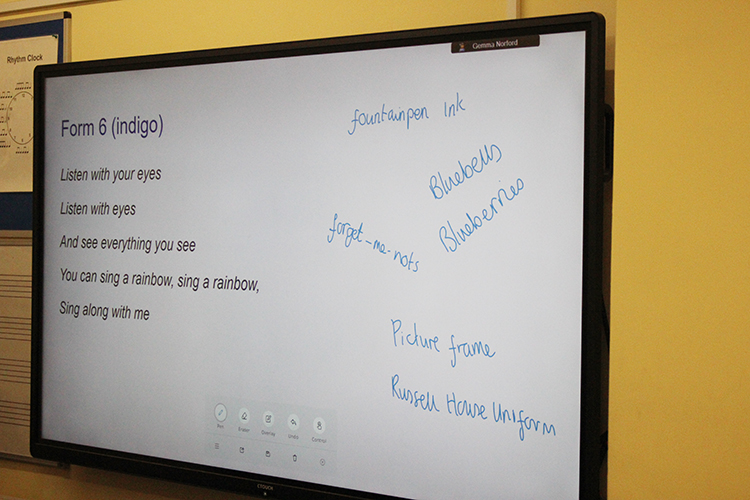 Rhythm Clock
Gemma Norford
Form 6 (indigo)
Listen with your eyes
Listen with eyes
And see everything you see
You can sing a rainbow, sing a rainbow,
Sing along with me
fountainpen Ink
Bluebells
Blueberries
forget-me-nots
Picture frame
Russell House Uniform
Pen Eraser Undo Control
CTOUCH